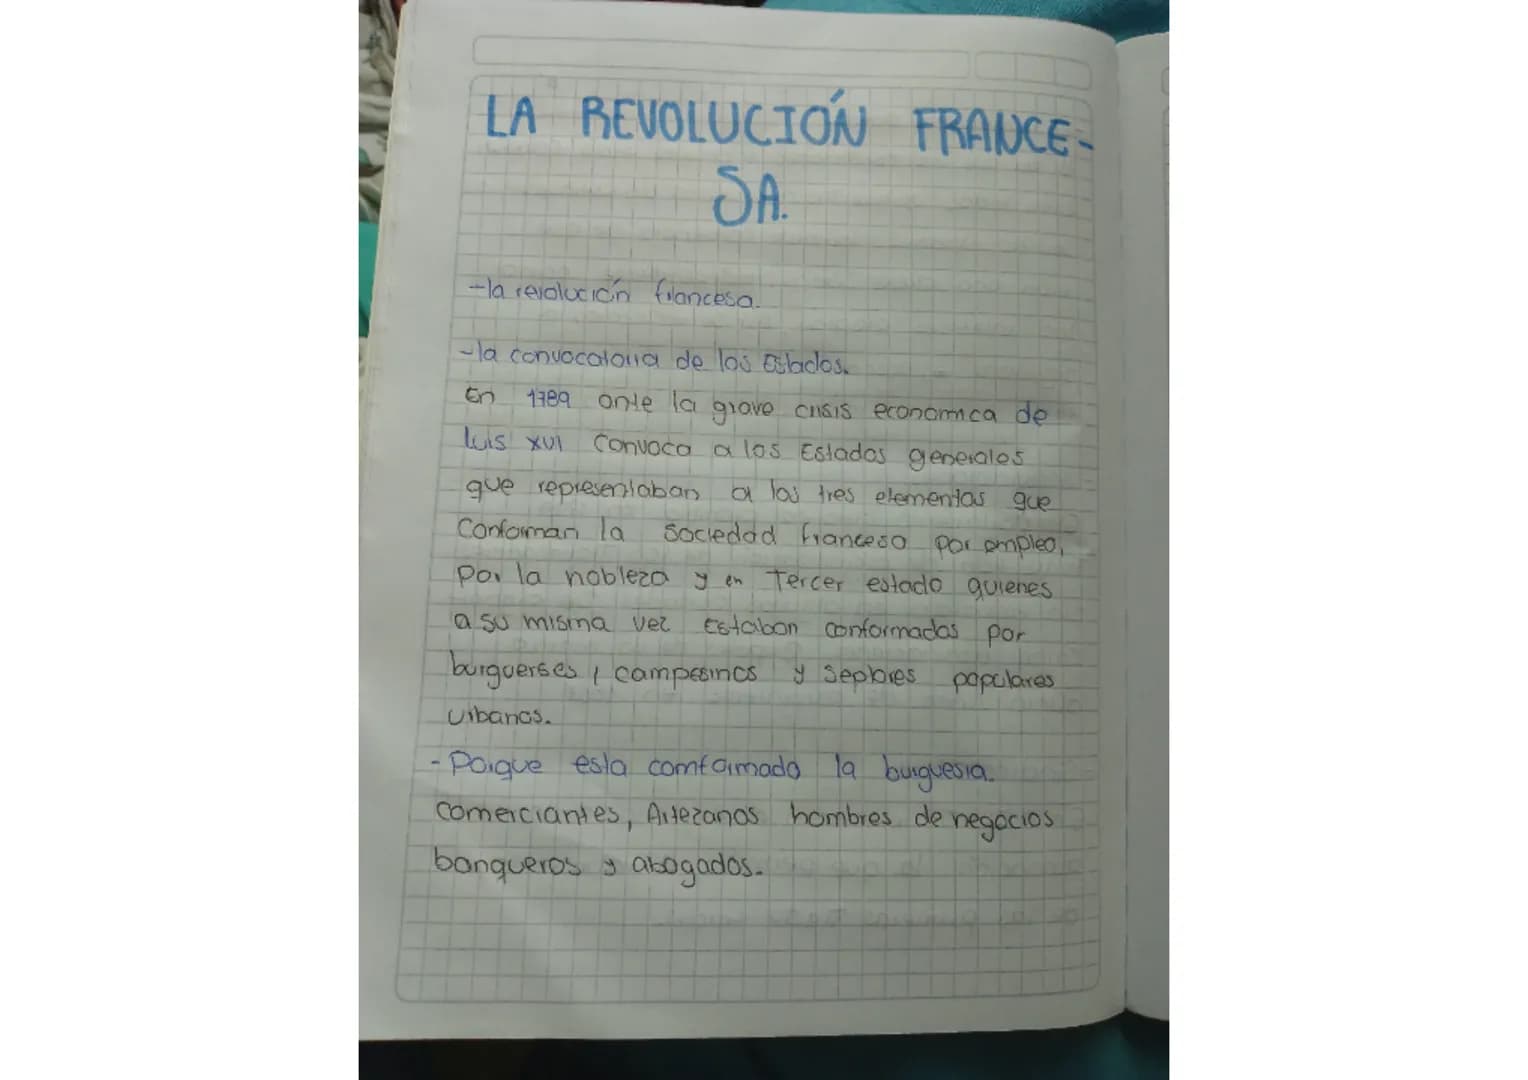 LA REVOLUCIÓN FRANCE-
SA.
-la revolución francesa.
-la convocatoria de los Estados.
En 1789 ante la grave crisis economica de
luis XVI Convoca a los Estados generales
que representaban a los tres elementos que
Conforman la Sociedad francesa por empleo,
por la nobleza y en Tercer estado quienes
a su misma vez Estaban conformados por
burguerses, campesinos y Seplores populares
urbanos.
-Porque esta comformada la burguesia.
comerciantes, Artezanos hombres de negocios
banqueros y abogados.